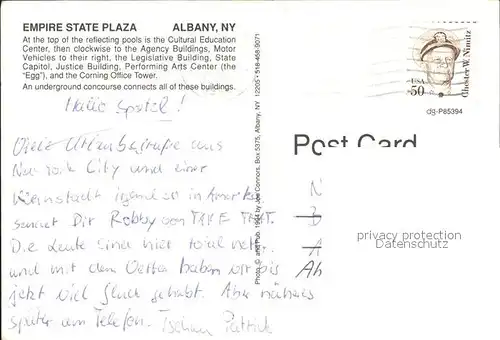 EMPIRE STATE PLAZA ALBANY, NY
At the top of the reflecting pools is the Cultural Education
Center, then clockwise to the Agency Buildings, Motor
Vehicles to their right, the Legislative Building, State
Capitol, Justice Building, Performing Arts Center (the
"Egg"), and the Corning Office Tower.
An underground concourse connects all of these buildings.
Hallo Spatzl!
Viele Urlaubsgrüße aus
New York City und einer
Kleinstadt irgendwo in Amerika
sendet Dir Robby von TAKE THAT.
Die Leute sind hier total nett.
und mit dem Wetter haben wir bis
jetzt viel Glück gehabt. Aber näheres
später am Telefon. Tschau Patrick
Photo © and Pub. 1994 by Joe Connors, Box 5375, Albany, NY 12205 • 518-468-9071
USA
50
Chester W. Nimitz
dg-P85394
Post Card
N
B
A
Ah
privacy protection
Datenschutz